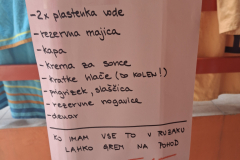 -2x plastenka vode
-rezervna majica
-kapa
-krema za sonce
-kratke hlače (DO KOLEN!)
-prigrizek, slaščica
-rezervne nogavice
-denar
KO IMAM VSE TO V RUZAKU
LAHKO GREM NA POHOD